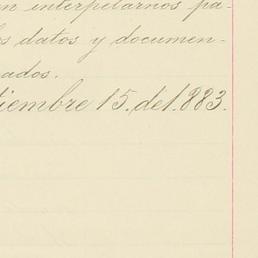 n interpelarnos pa-
s datos y documen-
ados.
tiembre 15, de 1.883.